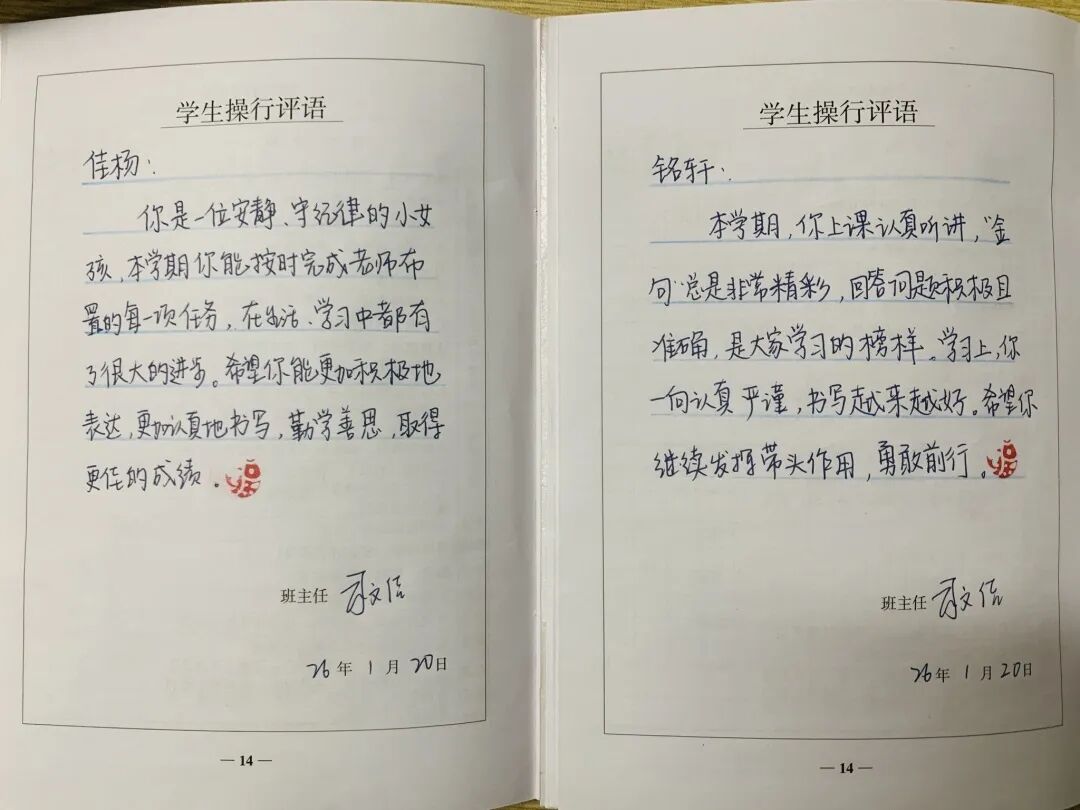 学生操行评语
佳杨：
你是一位安静、守纪律的小女
孩，本学期你能按时完成老师布
置的每一项任务，在生活、学习中都有
了很大的进步。希望你能更加积极地
表达，更加认真地书写，勤学善思，取得
更佳的成绩。
班主任
26年1月20日
— 14 —
学生操行评语
铭轩：
本学期，你上课认真听讲，“金
句”总是非常精彩，回答问题积极且
准确，是大家学习的榜样。学习上，你
一向认真严谨，书写越来越好。希望你
继续发挥带头作用，勇敢前行。
班主任
26年1月20日
— 14 —